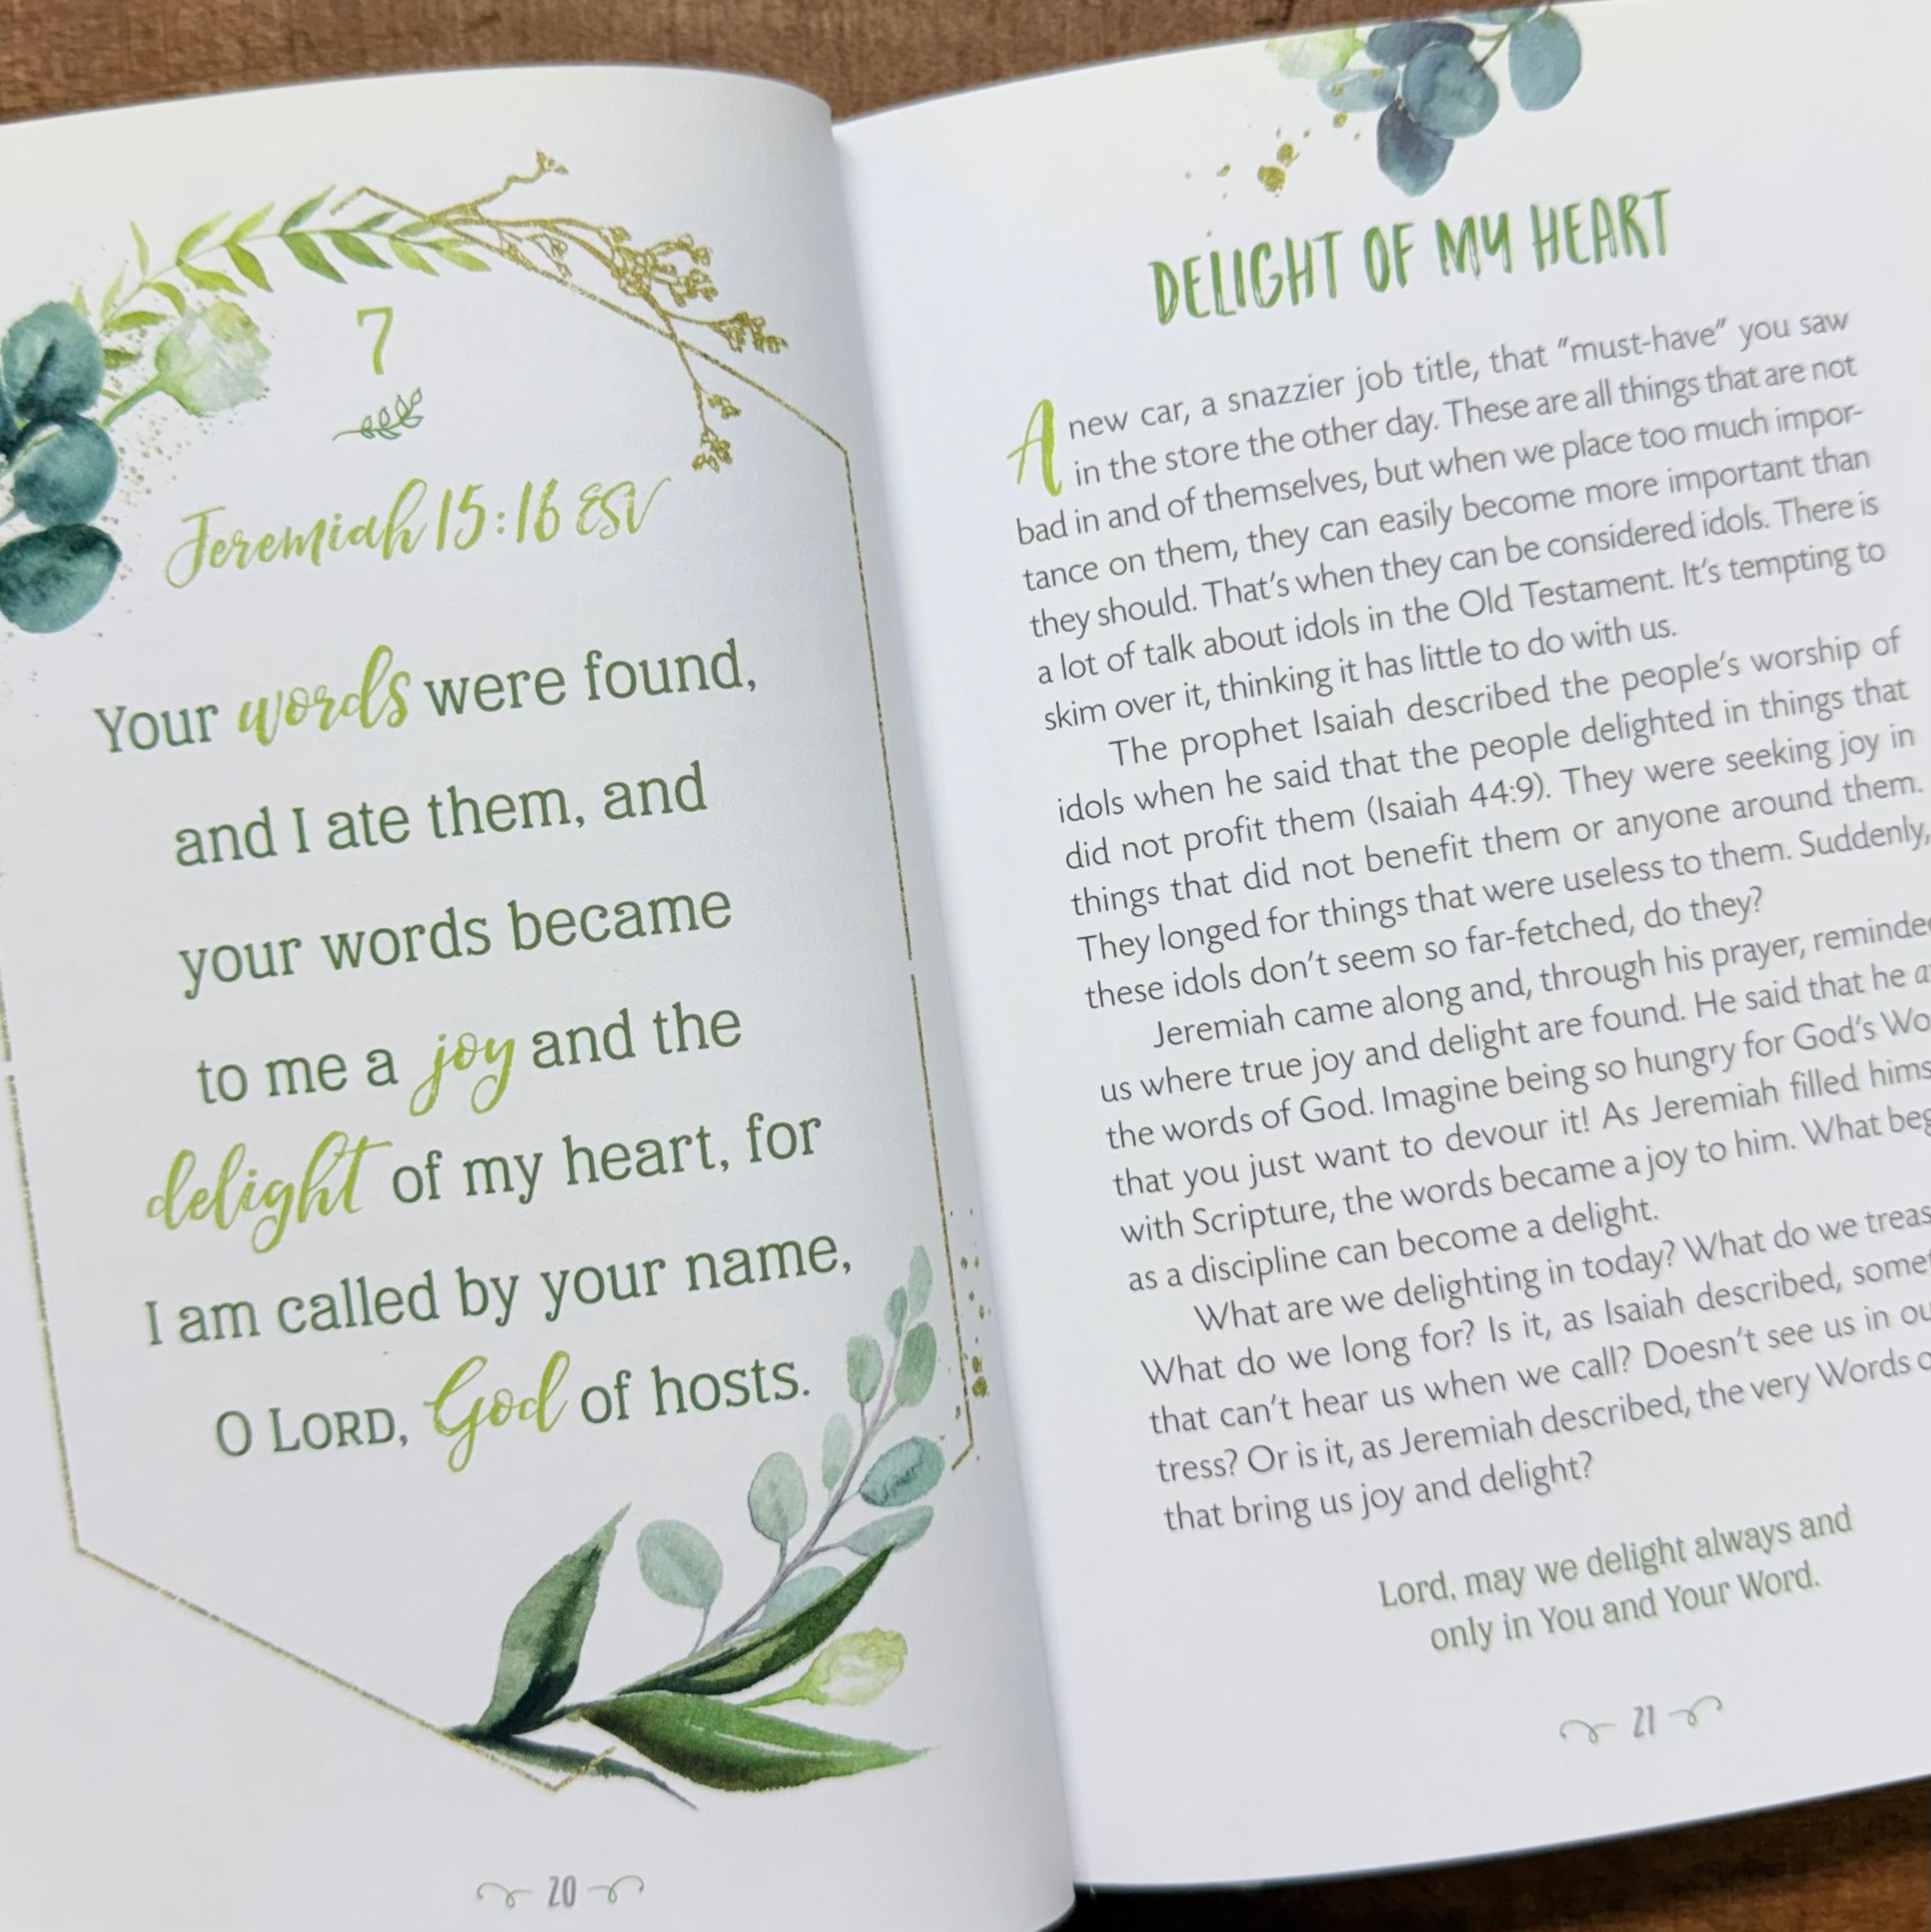 7
Jeremiah 15:16 ESV
Your words were found,
and I ate them, and
your words became
to me a joy and the
delight of my heart, for
I am called by your name,
O LORD, God of hosts.
20
DELIGHT OF MY HEART
A new car, a snazzier job title, that “must-have” you saw
in the store the other day. These are all things that are not
bad in and of themselves, but when we place too much impor-
tance on them, they can easily become more important than
they should. That’s when they can be considered idols. There is
a lot of talk about idols in the Old Testament. It’s tempting to
skim over it, thinking it has little to do with us.
The prophet Isaiah described the people’s worship of
idols when he said that the people delighted in things that
did not profit them (Isaiah 44:9). They were seeking joy in
things that did not benefit them or anyone around them.
They longed for things that were useless to them. Suddenly,
these idols don’t seem so far-fetched, do they?
Jeremiah came along and, through his prayer, reminde
us where true joy and delight are found. He said that he a
the words of God. Imagine being so hungry for God’s Wo
that you just want to devour it! As Jeremiah filled hims
with Scripture, the words became a joy to him. What beg
as a discipline can become a delight.
What are we delighting in today? What do we treas
What do we long for? Is it, as Isaiah described, somet
that can’t hear us when we call? Doesn’t see us in ou
tress? Or is it, as Jeremiah described, the very Words o
that bring us joy and delight?
Lord, may we delight always and
only in You and Your Word.
21